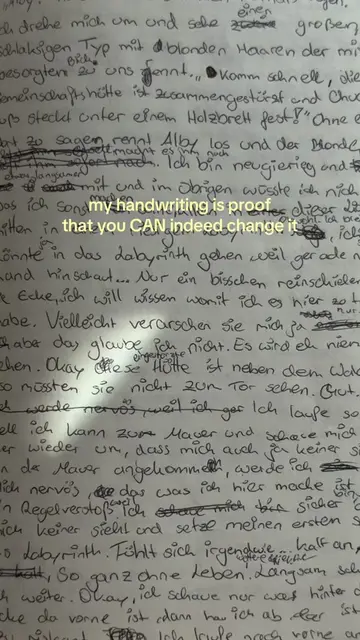 ch drehe mich um und sehe einen großen,
schlaksigen Typ mit blonden Haaren der mit
besorgten Blick zu uns rennt... "Komm schnell, die
Gemeinschaftshütte ist zusammengestürzt und Chuc
uß steckt unter einem Holzbrett fest!" Ohne e
zu sagen rennt Alby los und der Blonde,
Ich bin neugierig und
etwas langsamer mit und im Übrigen wüsste ich nich
as ich sonst
my handwriting is proof
that you CAN indeed change it
itten in
könnte in das Labyrinth gehen weil gerade n
mand hinschaut... Nur ein bisschen reinschielen
Ecke, ich will wissen womit ich es hier zu
habe. Vielleicht verarschen sie mich ja nur.
aber das glaube ich nicht. Es wird eh niem
ehen. Okay diese eingestürzte Hütte ist neben dem Wald
so müssten sie nicht zum Tor sehen. Gut.
werde nervös, weil ich ger Ich laufe so
ell ich kann zur Mauer und schaue mich
er wieder um, dass mich auch ja keiner si
n der Mauer angekommen, werde ich
lich nervös, das was ich hier mache ist
in Regelverstoß, ich schaue mich bin sicher
ich keiner sieht und setze meinen ersten
Labyrinth. Fühlt sich irgendwie kalt an,
So ganz ohne Leben. Langsam
weiter. Okay, ich schaue nur was hinter
cke da vorne ist, dann hau ich ab
Ich laufe nach vorne